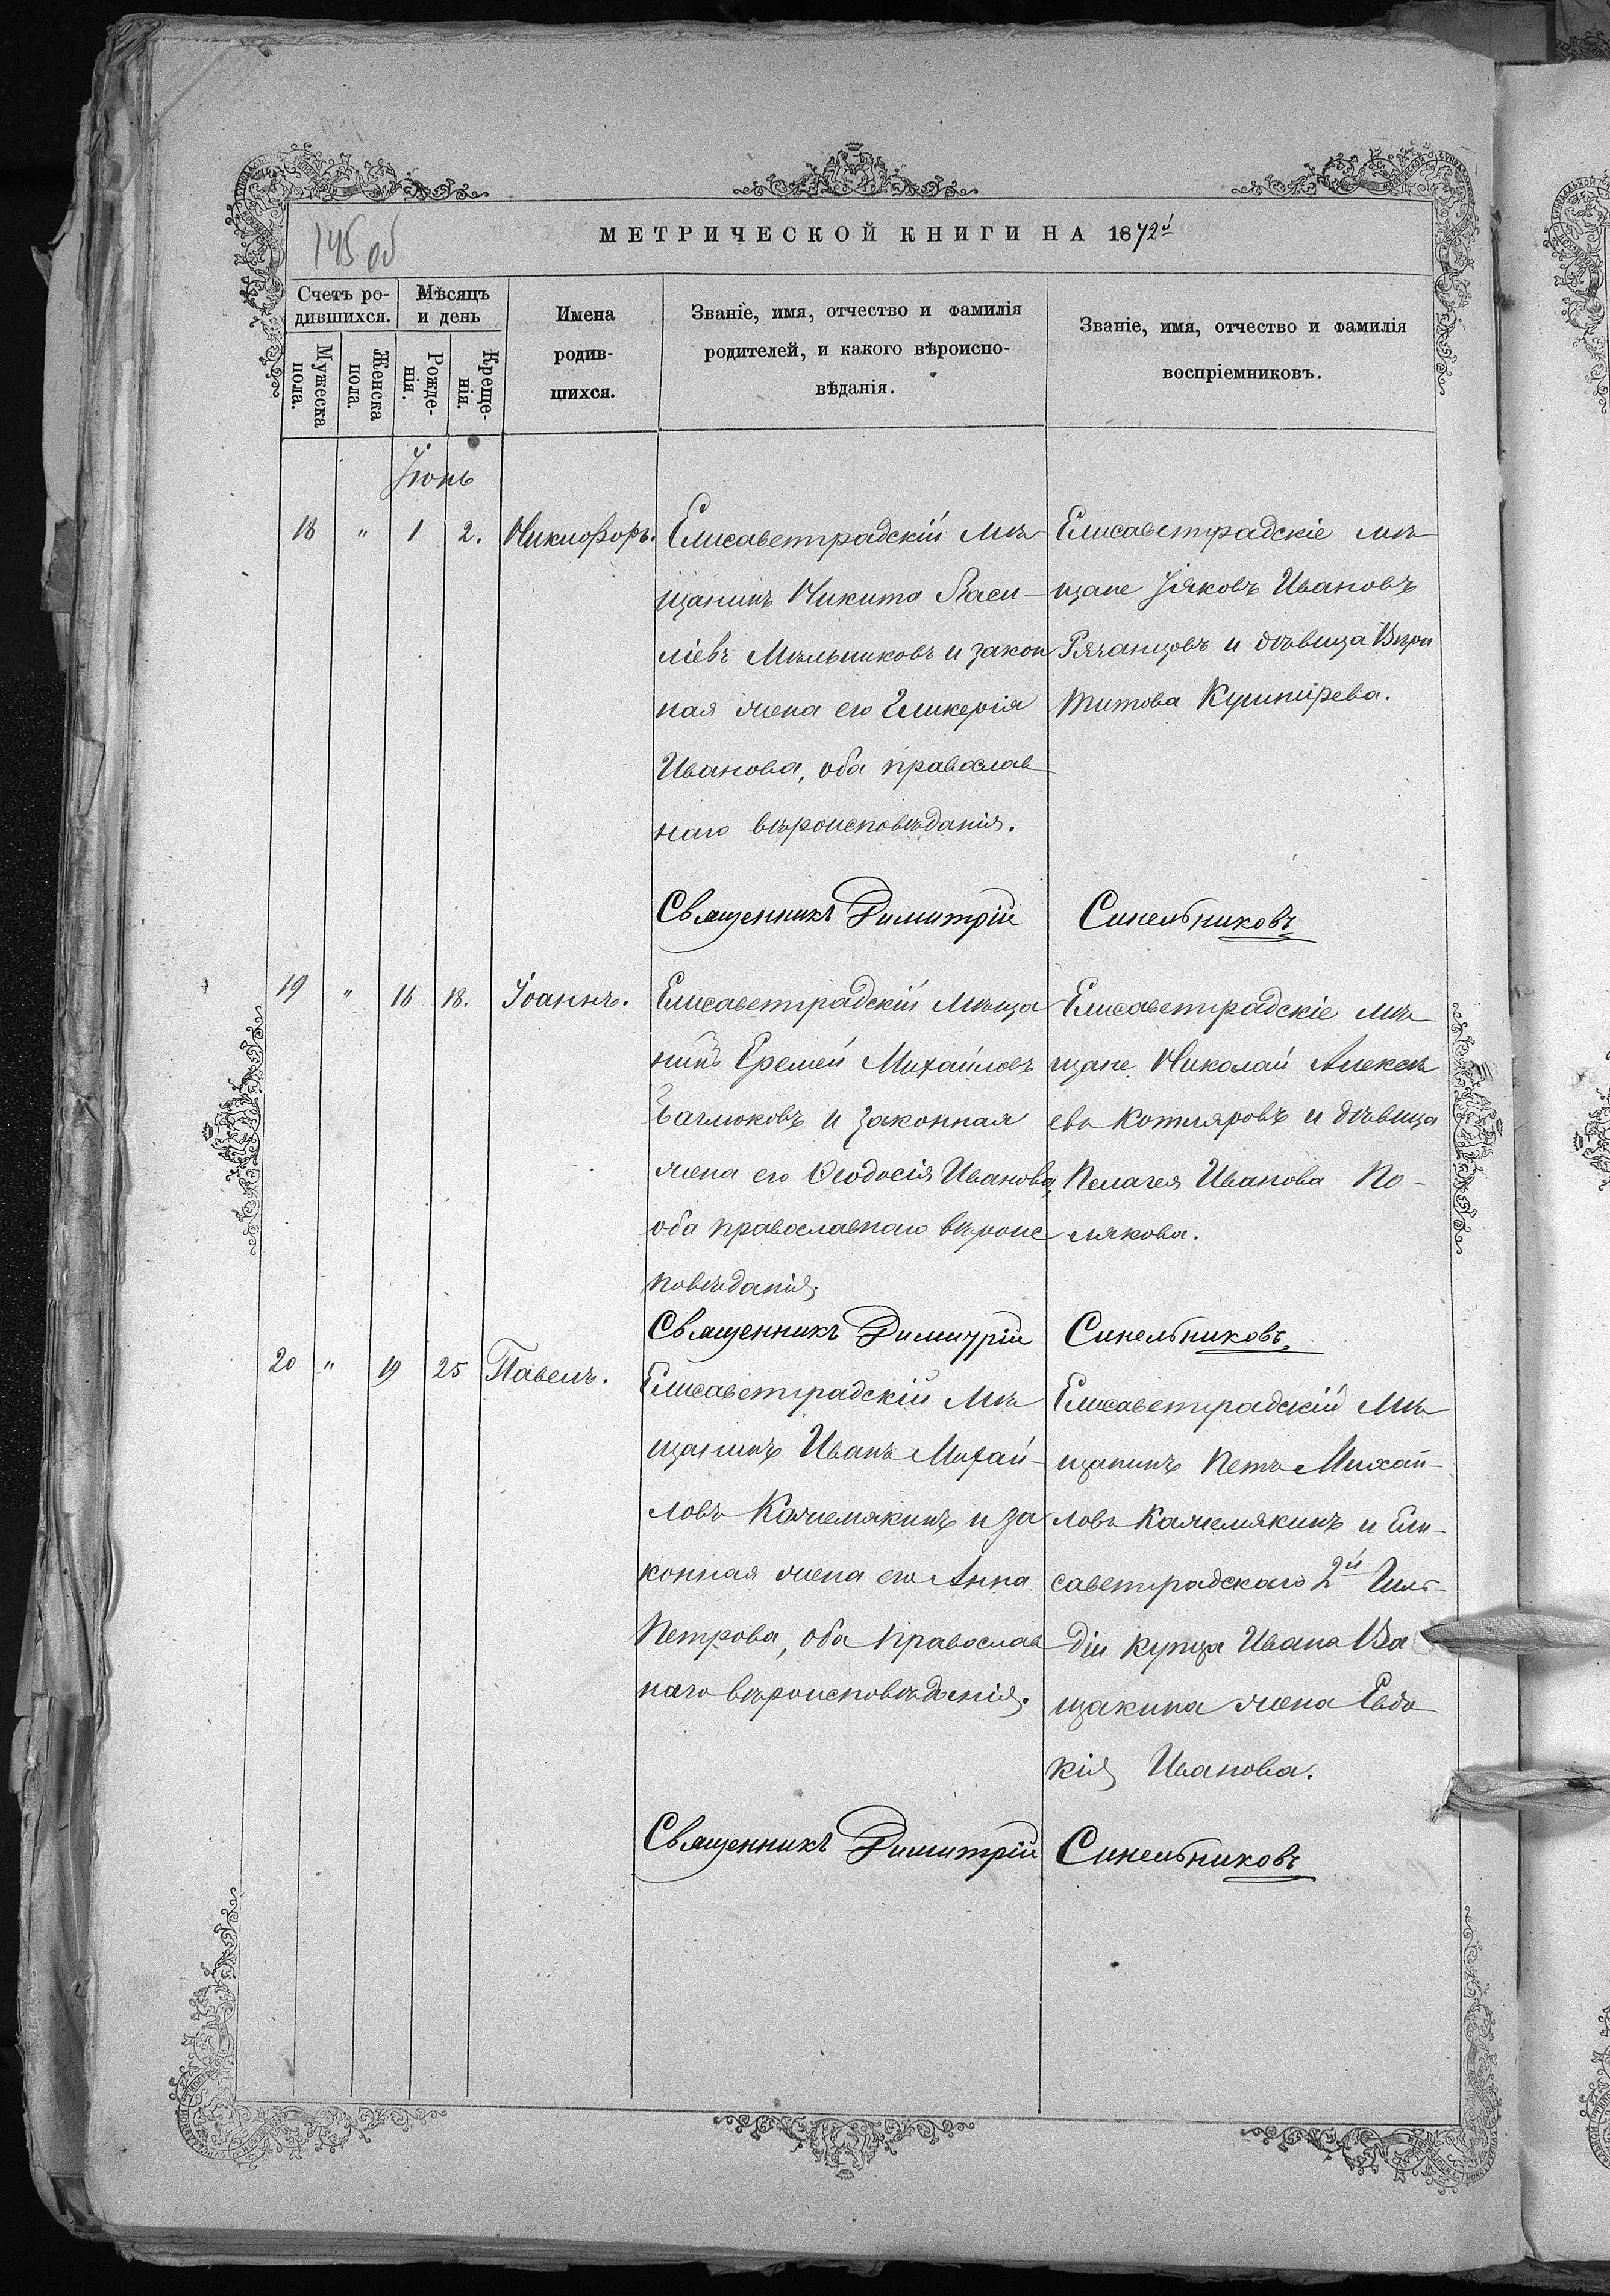 145 об
МЕТРИЧЕСКОЙ КНИГИ НА 1872й
Счетъ ро-
дившихся.
Мѣсяцъ
и день
Мужеска
пола.
Женска
пола.
Рожде-
нія.
Креще-
нія.
Имена
родив-
шихся.
Званіе, имя, отчество и фамилія
родителей, и какого вѣроиспо-
вѣданія.
Званіе, имя, отчество и фамилія
воспріемниковъ.
Іюнь
18 " 1 2. Никифоръ.
Елисаветградскій мѣ
щанинъ Никита Васи-
ліевъ Мѣльниковъ и закон
ная жена его Гликерія
Иванова, оба православ
наго вѣроисповѣданія.
Елисаветградскіе мѣ
щане Іяковъ Ивановъ
Рязанцовъ и дѣвица Вѣра
Титова Кушнирева.
Священникъ Димитрій Синельниковъ
19 " 16 18. Іоаннъ.
Елисаветградскій мѣща
нинъ Еремей Михайловъ
и законная
жена его Ѳеодосія Иванова,
оба православнаго вѣроис
повѣданія.
Елисаветградскіе мѣ
щане Николай Алексѣ
евъ Котляровъ и дѣвица
Пелагея Иванова По-
лякова.
Священникъ Димитрій Синельниковъ
20 " 19 25 Павелъ.
Елисаветградскій мѣ
щанинъ Иванъ Михай-
ловъ Кожемякинъ и за
конная жена его Анна
Петрова, оба православ
наго вѣроисповѣданія.
Елисаветградскій мѣ
щанинъ Петъ Михай-
ловъ Кожемякинъ и Ели-
саветградскаго 2й Гиль-
діи купца Ивана Ва
щакина жена Евдо
кія Иванова.
Священникъ Димитрій Синельниковъ